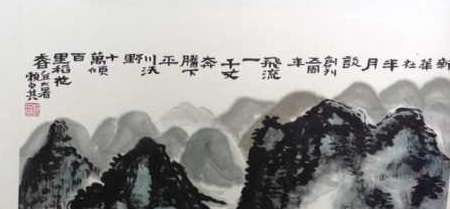 新
華
社
半
月
談
創刊
五周
年
飛流
一
千丈
奔
騰下
平
川沃
野
十
萬頃
百
里稻花
香
丑大暑
賴少其